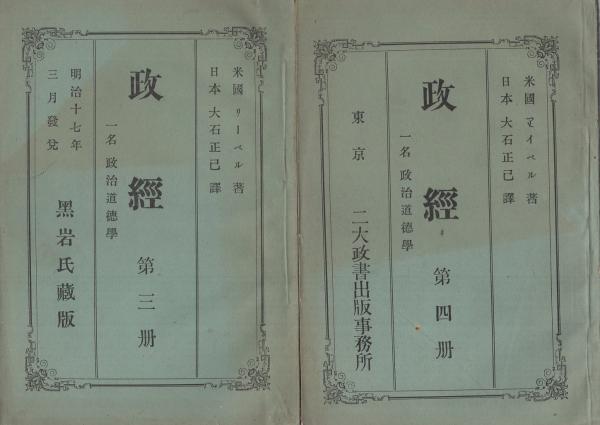 米國 リーベル 著
日本 大石正己 譯
政經 第三册
一名 政治道德學
明治十七年
三月發兌
黑岩氏藏版
米國 マイベル 著
日本 大石正己 譯
政經 第四册
一名 政治道德學
東京 二大政書出版事務所